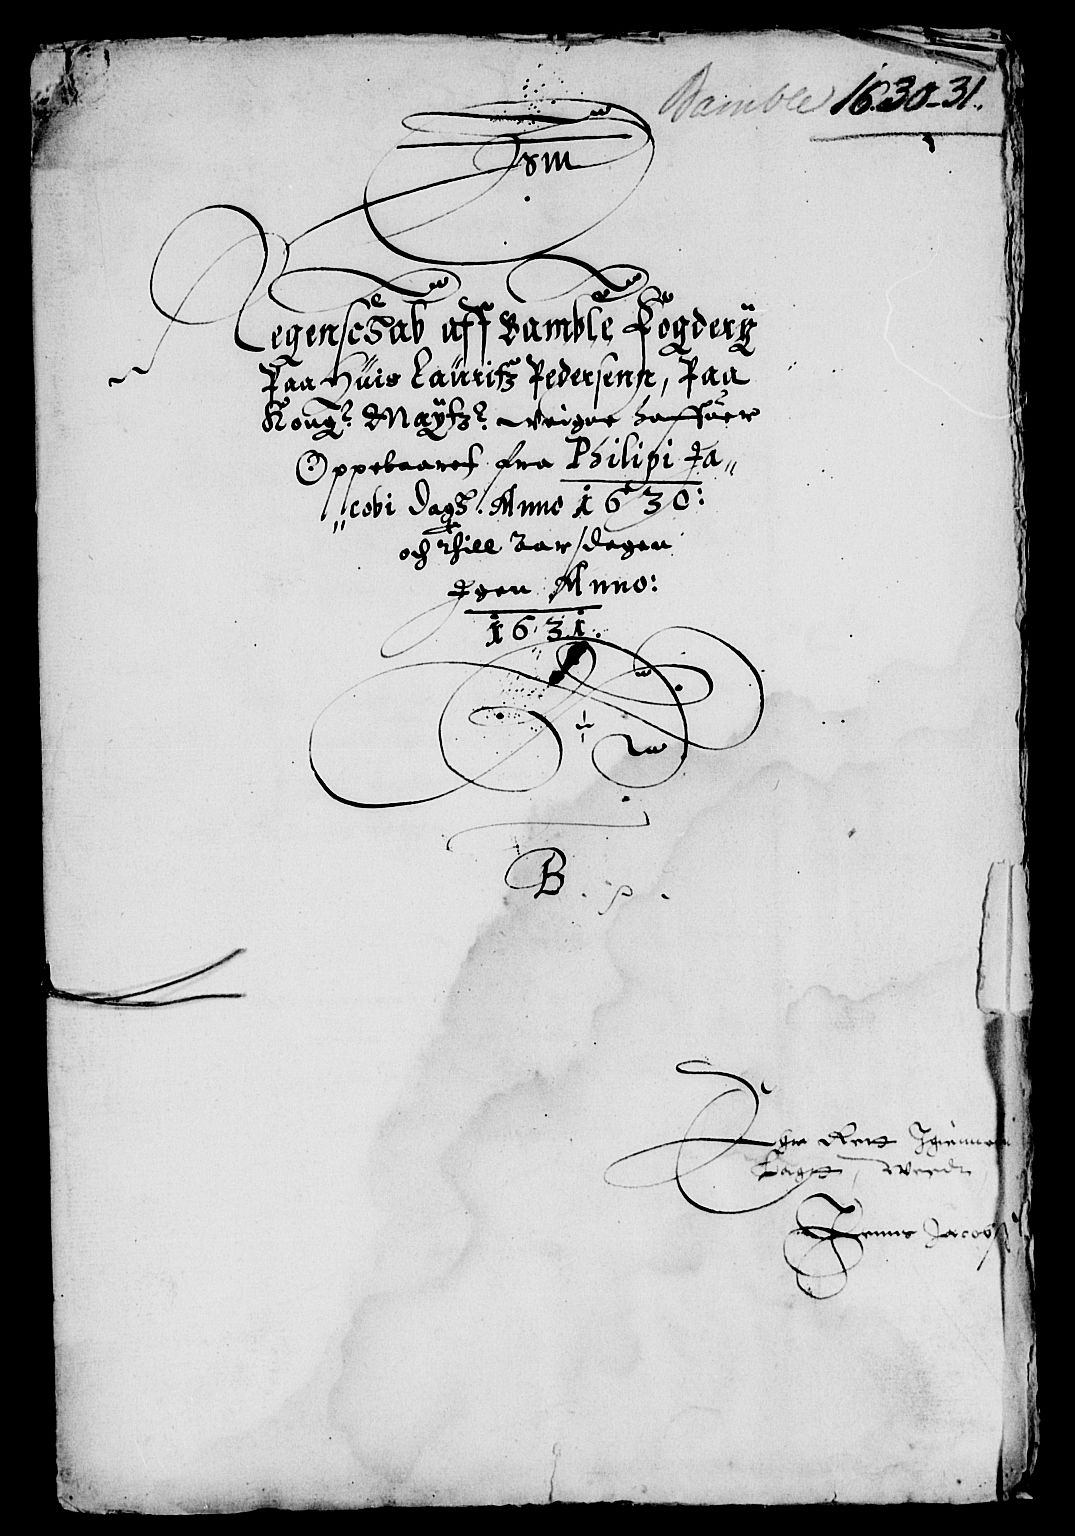 Bamble 1630-31.
Regenschab aff Bamble Fögderÿ
Paa huis Lauritz Pedersenn, Paa
Kong: Maÿtz: weigne haffuer
Oppebaaret fra Philipi Ja„
„cobi dags Anno 1630:
och thill Aarsdagen
Igen Anno:
1631.
B.
Jacobß